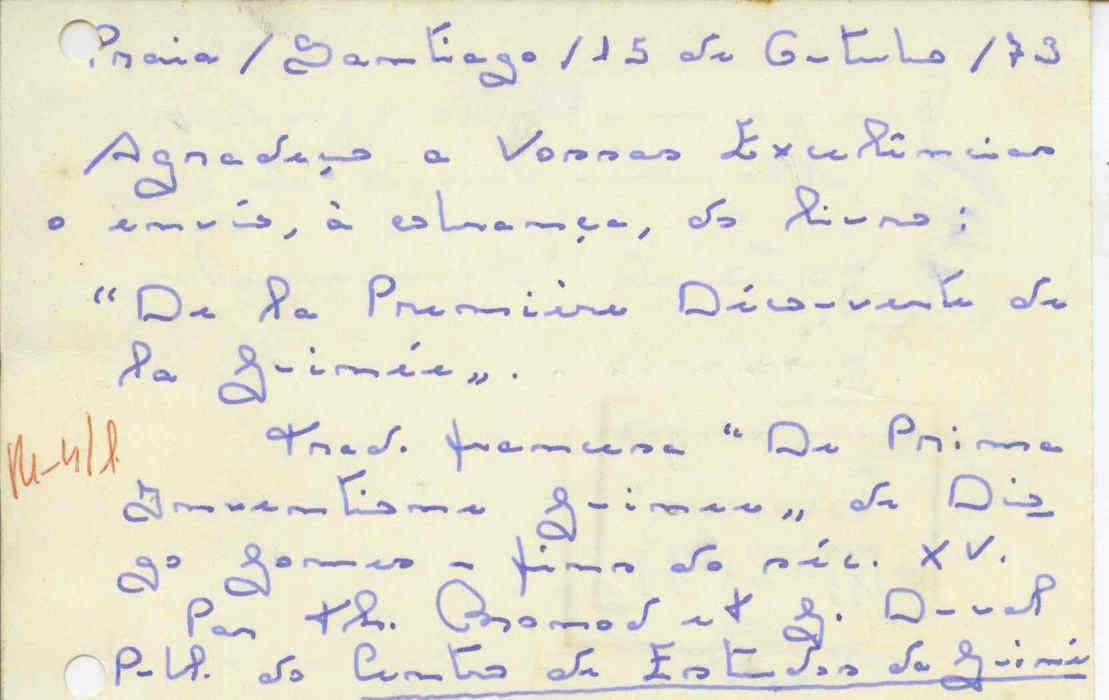 Praia / Santiago / 15 de Outubro / 73
Agradeço a Vossas Excelências
o envio, à cobrança, do livro:
"De la Première Découverte de
la Guinée".
Trad. francesa "De Prima
Inventione Guinee" de Dio
go Gomes - fins do séc. XV.
Par Th. Monod et G. Duval
Publ. do Centro de Estudos da Guiné